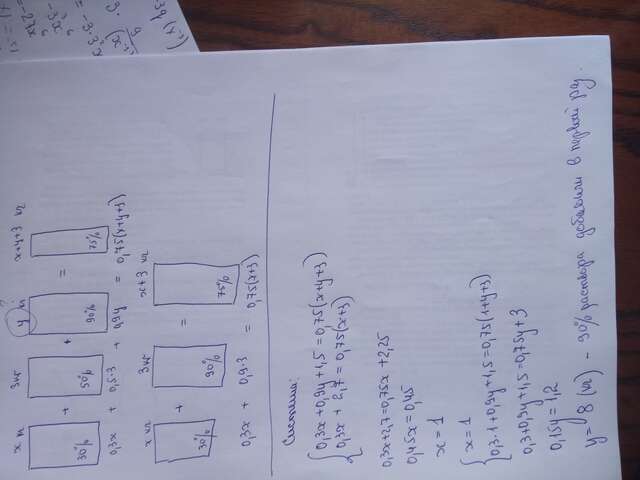 ?
x кг 3кг y кг x+y+3 кг
30% + 50% + 90% = 75%
0,3x + 0,5·3 + 0,9y = 0,75(x+y+3)
x кг 3кг x+3 кг
30% + 90% = 75%
0,3x + 0,9·3 = 0,75(x+3)
Система:
0,3x+0,9y+1,5=0,75(x+y+3)
0,3x + 2,7 = 0,75(x+3)
0,3x+2,7=0,75x +2,25
0,45x=0,45
x=1
x=1
0,3·1+0,9y+1,5=0,75(1+y+3)
0,3+0,9y+1,5=0,75y+3
0,15y=1,2
y= 8 (кг) - 90% раствора добавили в первый раз.